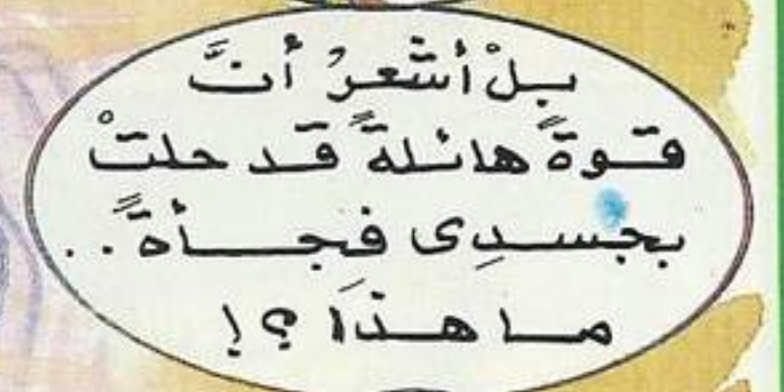 بلْ أشعرُ أنَّ
قوةً هائلةً قد حلتْ
بجسدِى فجأةً..
ما هذَا ؟!